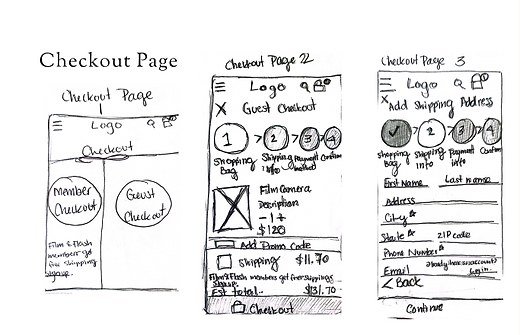 Checkout Page
Checkout Page
Logo
Checkout
Member Checkout
Guest Checkout
Film & Flash
members get
free shipping
sign up..
Checkout Page 2
Logo
X Guest Checkout
1 > 2 > 3 > 4
Shopping Bag
Shipping info
Payment method
Confirm
Film Camera
Description
- 1 +
$120
Add Promo Code
Shipping $11.70
Film & Flash members get free shipping
sign up.
Est total.. $131.70
Checkout
Checkout Page 3
Logo
X Add Shipping Address
✓ > 2 > 3 > 4
Shopping Bag
Shipping info
Payment info
Confirm
First Name Last name
Address
City
State ZIP code
Phone Number
Email
Log in..
< Back
Continue